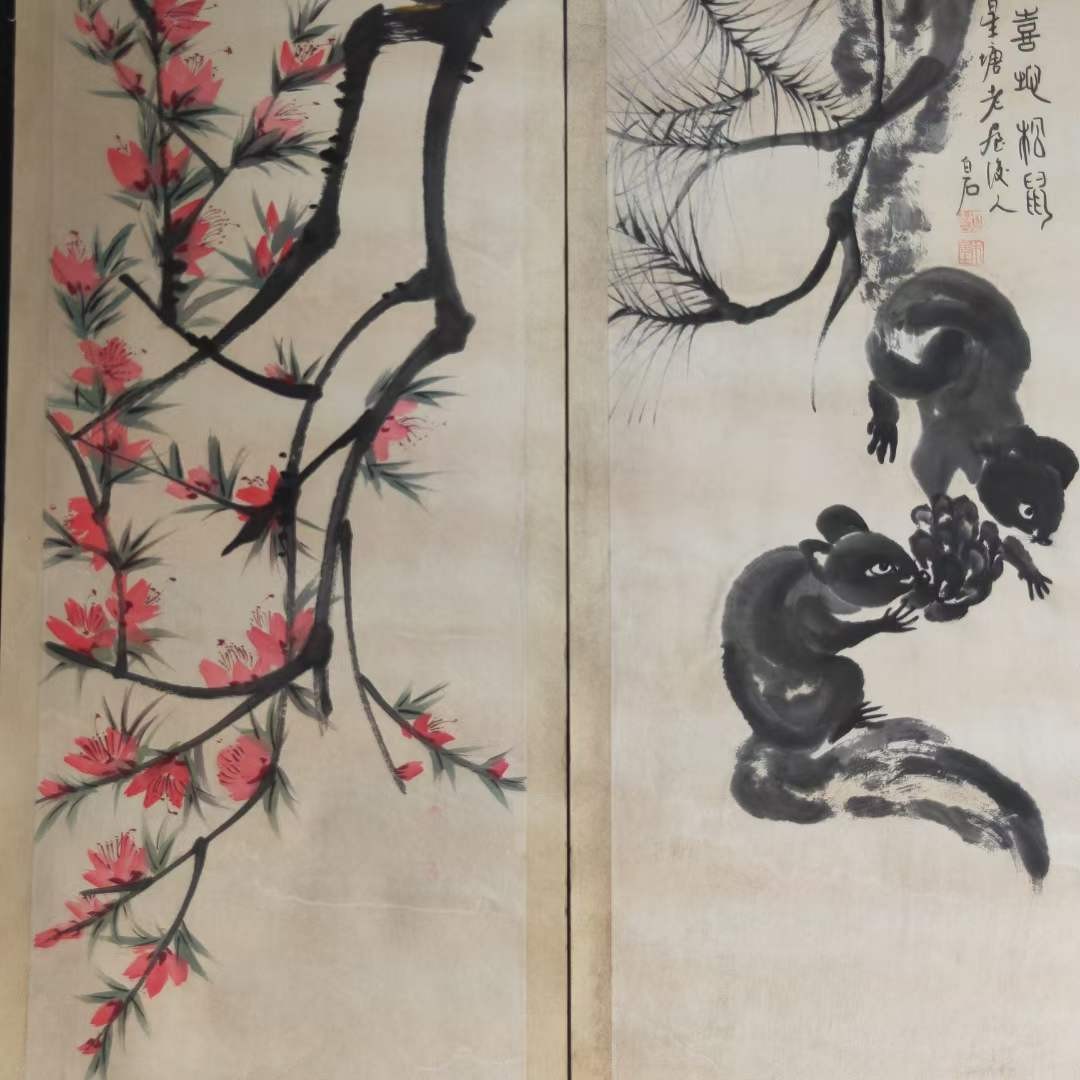 喜地松鼠
星塘老屋後人
白石